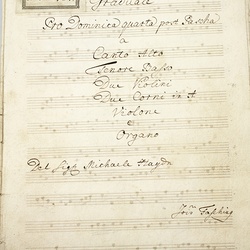 Graduale
Pro Dominica quarta post Pascha
a
Canto Alto
Tenore Basso
Due Violini
Due Corni in
Violone
e
Organo
Del Sigh Michaele Haydn